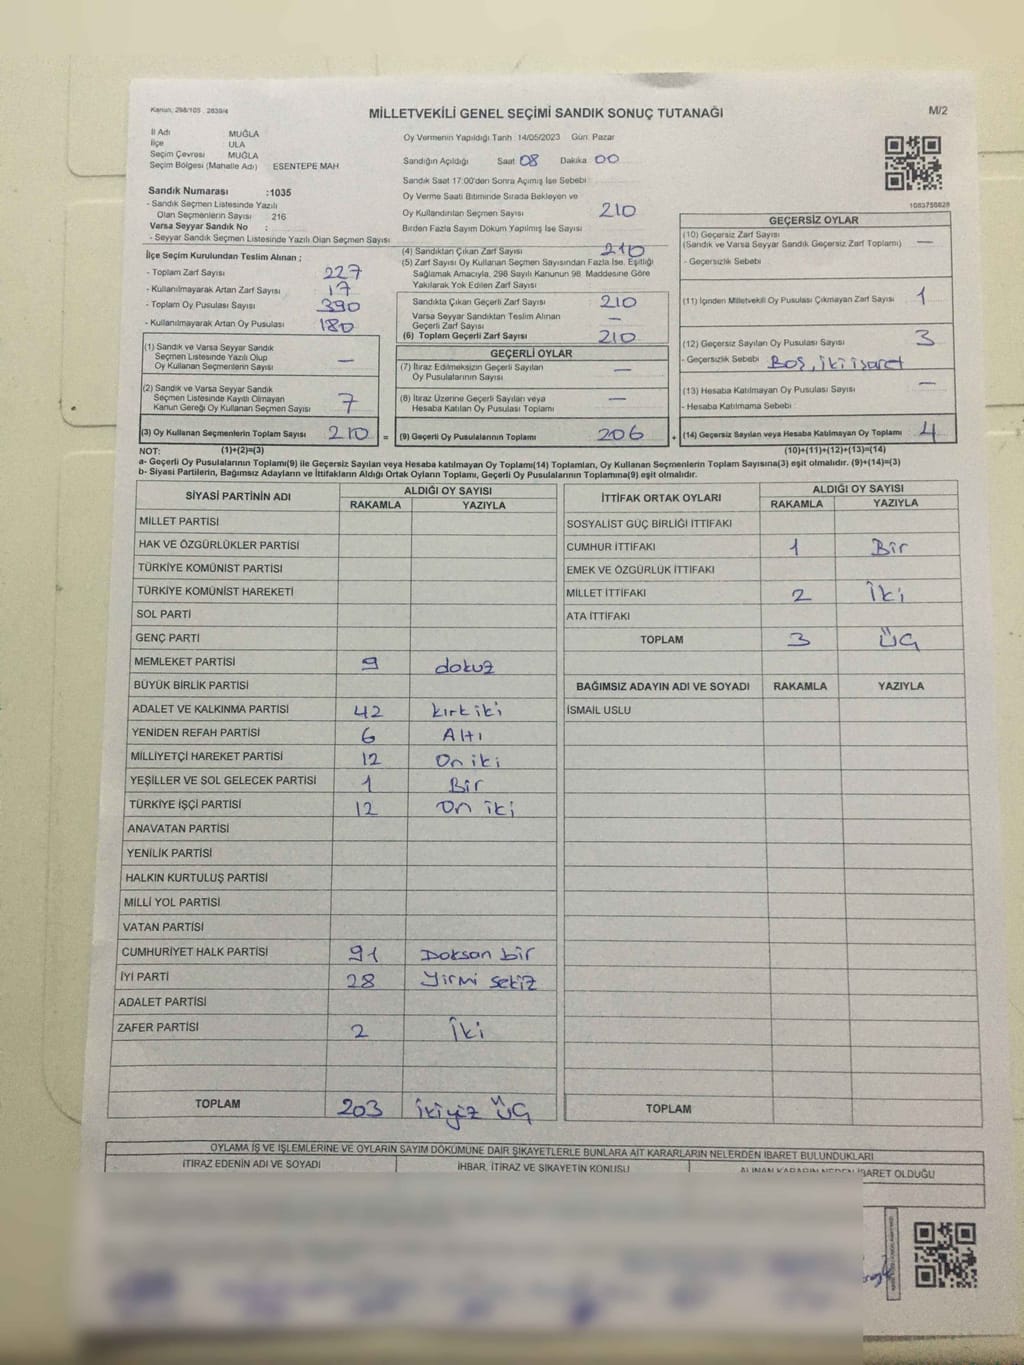 Kanun; 298/105 , 2839/4
MİLLETVEKİLİ GENEL SEÇİMİ SANDIK SONUÇ TUTANAĞI
M/2
İl Adı MUĞLA
İlçe ULA
Seçim Çevresi MUĞLA
Seçim Bölgesi (Mahalle Adı) ESENTEPE MAH
Sandık Numarası :1035
- Sandık Seçmen Listesinde Yazılı
Olan Seçmenlerin Sayısı 216
Varsa Seyyar Sandık No :
- Seyyar Sandık Seçmen Listesinde Yazılı Olan Seçmen Sayısı
İlçe Seçim Kurulundan Teslim Alınan ;
- Toplam Zarf Sayısı 227
- Kullanılmayarak Artan Zarf Sayısı 17
- Toplam Oy Pusulası Sayısı 390
- Kullanılmayarak Artan Oy Pusulası 180
(1) Sandık ve Varsa Seyyar Sandık
Seçmen Listesinde Yazılı Olup
Oy Kullanan Seçmenlerin Sayısı —
(2) Sandık ve Varsa Seyyar Sandık
Seçmen Listesinde Kayıtlı Olmayan
Kanun Gereği Oy Kullanan Seçmen Sayısı 7
(3) Oy Kullanan Seçmenlerin Toplam Sayısı 210 =
Oy Vermenin Yapıldığı Tarih 14/05/2023 Gün: Pazar
Sandığın Açıldığı Saat 08 Dakika 00
Sandık Saat 17:00'den Sonra Açılmış İse Sebebi
Oy Verme Saati Bitiminde Sırada Bekleyen ve
Oy Kullandırılan Seçmen Sayısı 210
Birden Fazla Sayım Döküm Yapılmış İse Sayısı
(4) Sandıktan Çıkan Zarf Sayısı 210
(5) Zarf Sayısı Oy Kullanan Seçmen Sayısından Fazla İse, Eşitliği
Sağlamak Amacıyla, 298 Sayılı Kanunun 98. Maddesine Göre
Yakılarak Yok Edilen Zarf Sayısı
Sandıkta Çıkan Geçerli Zarf Sayısı 210
Varsa Seyyar Sandıktan Teslim Alınan
Geçerli Zarf Sayısı —
(6) Toplam Geçerli Zarf Sayısı 210
GEÇERLİ OYLAR
(7) İtiraz Edilmeksizin Geçerli Sayılan
Oy Pusulalarının Sayısı —
(8) İtiraz Üzerine Geçerli Sayılan veya
Hesaba Katılan Oy Pusulası Toplamı —
(9) Geçerli Oy Pusulalarının Toplamı 206 +
1083750828
GEÇERSİZ OYLAR
(10) Geçersiz Zarf Sayısı
(Sandık ve Varsa Seyyar Sandık Geçersiz Zarf Toplamı) —
- Geçersizlik Sebebi
(11) İçinden Milletvekili Oy Pusulası Çıkmayan Zarf Sayısı 1
(12) Geçersiz Sayılan Oy Pusulası Sayısı 3
- Geçersizlik Sebebi Boş, iki işaret
(13) Hesaba Katılmayan Oy Pusulası Sayısı —
- Hesaba Katılmama Sebebi :
(14) Geçersiz Sayılan veya Hesaba Katılmayan Oy Toplamı 4
NOT: (1)+(2)=(3) (10)+(11)+(12)+(13)=(14)
a- Geçerli Oy Pusulalarının Toplamı(9) ile Geçersiz Sayılan veya Hesaba katılmayan Oy Toplamı(14) Toplamları, Oy Kullanan Seçmenlerin Toplam Sayısına(3) eşit olmalıdır. (9)+(14)=(3)
b- Siyasi Partilerin, Bağımsız Adayların ve İttifakların Aldığı Ortak Oyların Toplamı, Geçerli Oy Pusulalarının Toplamına(9) eşit olmalıdır.
SİYASİ PARTİNİN ADI ALDIĞI OY SAYISI
RAKAMLA YAZIYLA
MİLLET PARTİSİ
HAK VE ÖZGÜRLÜKLER PARTİSİ
TÜRKİYE KOMÜNİST PARTİSİ
TÜRKİYE KOMÜNİST HAREKETİ
SOL PARTİ
GENÇ PARTİ
MEMLEKET PARTİSİ 9 dokuz
BÜYÜK BİRLİK PARTİSİ
ADALET VE KALKINMA PARTİSİ 42 kırk iki
YENİDEN REFAH PARTİSİ 6 Altı
MİLLİYETÇİ HAREKET PARTİSİ 12 On iki
YEŞİLLER VE SOL GELECEK PARTİSİ 1 Bir
TÜRKİYE İŞÇİ PARTİSİ 12 On iki
ANAVATAN PARTİSİ
YENİLİK PARTİSİ
HALKIN KURTULUŞ PARTİSİ
MİLLİ YOL PARTİSİ
VATAN PARTİSİ
CUMHURİYET HALK PARTİSİ 91 Doksan bir
İYİ PARTİ 28 Yirmi sekiz
ADALET PARTİSİ
ZAFER PARTİSİ 2 İki
TOPLAM 203 İkiyüz Üç
İTTİFAK ORTAK OYLARI ALDIĞI OY SAYISI
RAKAMLA YAZIYLA
SOSYALİST GÜÇ BİRLİĞİ İTTİFAKI
CUMHUR İTTİFAKI 1 Bir
EMEK VE ÖZGÜRLÜK İTTİFAKI
MİLLET İTTİFAKI 2 İki
ATA İTTİFAKI
TOPLAM 3 Üç
BAĞIMSIZ ADAYIN ADI VE SOYADI RAKAMLA YAZIYLA
İSMAİL USLU
TOPLAM
OYLAMA İŞ VE İŞLEMLERİNE VE OYLARIN SAYIM DÖKÜMÜNE DAİR ŞİKAYETLERLE BUNLARA AİT KARARLARIN NELERDEN İBARET BULUNDUKLARI
İTİRAZ EDENİN ADI VE SOYADI İHBAR, İTİRAZ VE ŞİKAYETİN KONUSU ALINAN KARARIN NEDEN İBARET OLDUĞU